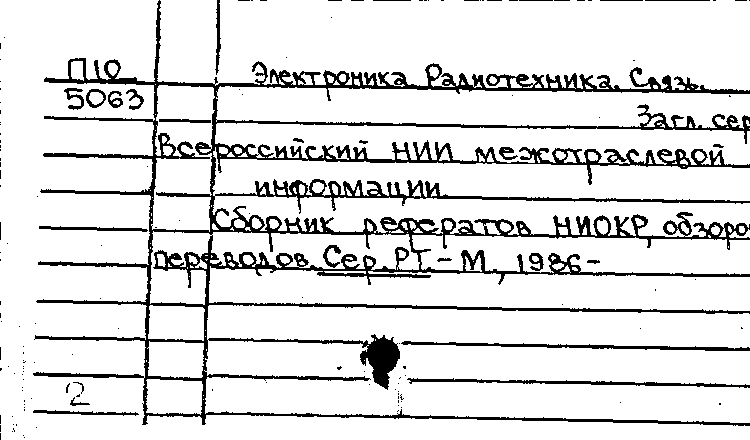 П10
5063
Электроника. Радиотехника. Связь.
Загл. сер
Всероссийский НИИ межотраслевой
информации.
Сборник рефератов НИОКР, обзоро
переводов. Сер. РТ. - М., 1986-
2